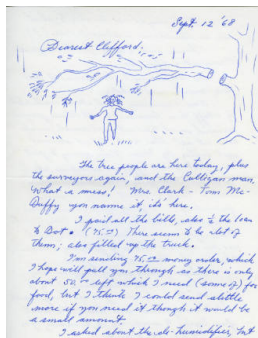 Sept. 12 '68
Dearest Clifford.
The tree people are here today, plus
the surveyors again, and the Culligan man.
What a mess! Mrs Clark - Tom Mc-
Duffy you name it, it's here.
I paid all the bills, also the loan
to Dot. (75.00) There seems to be a lot of
them; also filled up the truck.
I'm sending 75.00 money order, which
I hope will pull you through as there is only
about 50.00 left which I need (some of) for
food, but I think I could send a little
more if you need it though it would be
a small amount.
I asked about the de-humidifier, but